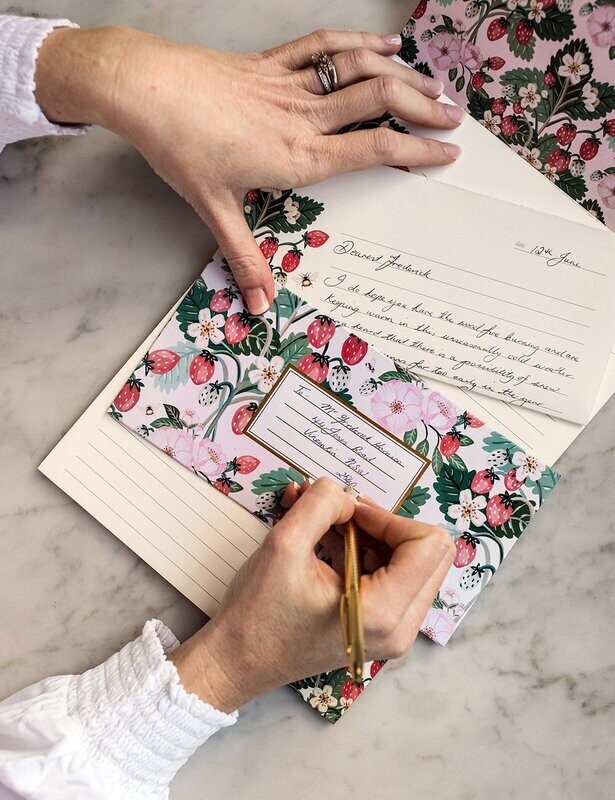 date 12th June
Dearest Frederik
I do hope you have the wood fire burning and are
keeping warm in this unseasonally cold weather
heard that there is a possibility of snow
far too early in the year
To: Mr Frederik
Road
NSW